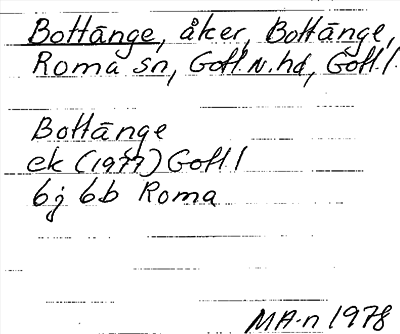 Bottänge, åker, Bottänge,
Roma sn, Gotl. N. hd, Gotl. l.
Bottänge
ek (1977) Gotl l
6j 6b Roma
MA-n 1978